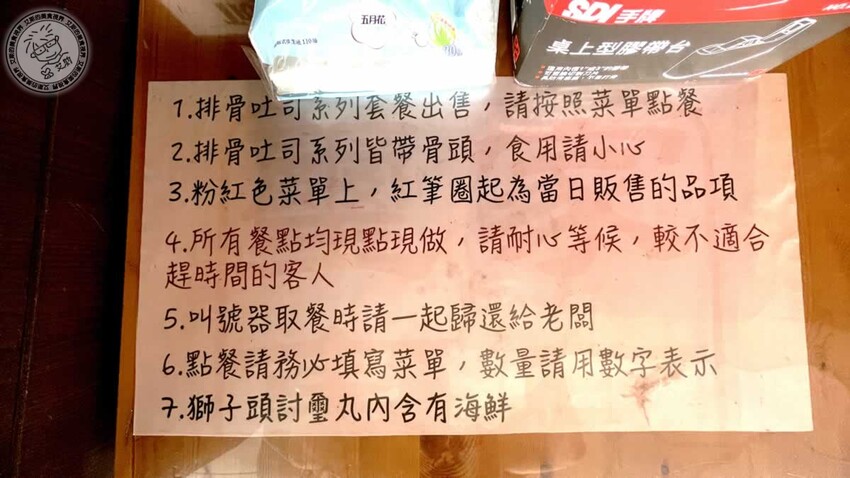 五月花
SDI 手牌
桌上型膠帶台
1.排骨吐司系列套餐出售,請按照菜單點餐
2.排骨吐司系列皆帶骨頭,食用請小心
3.粉紅色菜單上,紅筆圈起為當日販售的品項
4.所有餐點均現點現做,請耐心等候,較不適合
趕時間的客人
5.叫號器取餐時請一起歸還給老闆
6.點餐請務必填寫菜單,數量請用數字表示
7.獅子頭討璽丸內含有海鮮